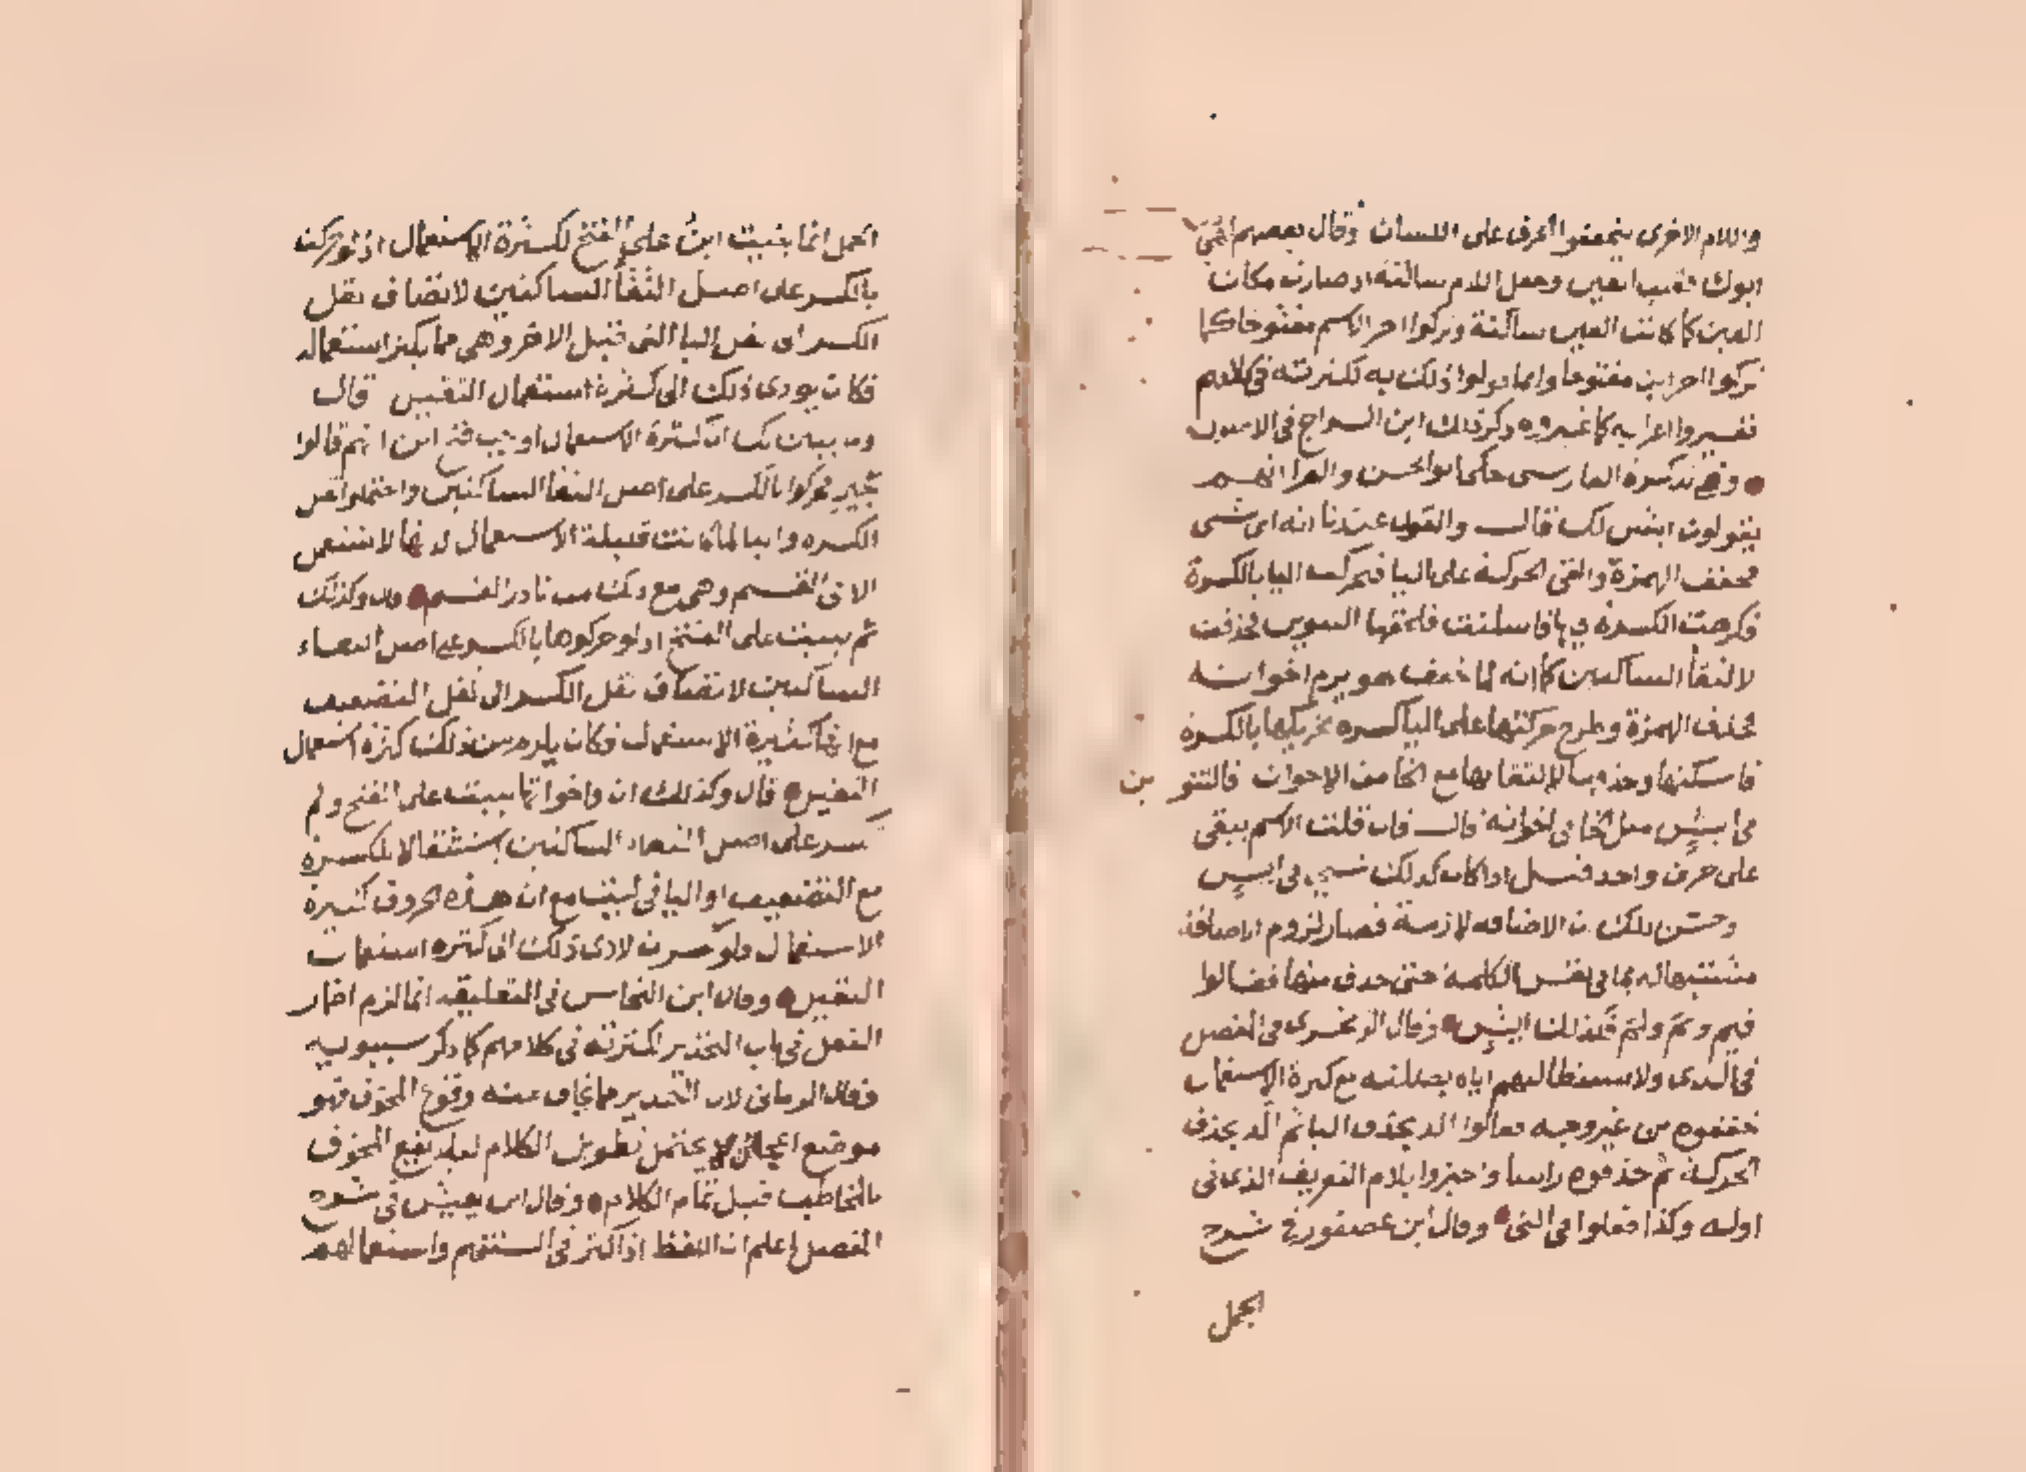 واللام الاخرى ليخففوا الحرف على اللسان وقال بعضهم لهي
ابوك فقلب العين وجعل اللام ساكنة اذ صارت مكان
العين كما كانت العين ساكنة وتركوا اخر الاسم مفتوحا كما
تركوا اخر اين مفتوحا وانما فعلوا ذلك به لكثرته في كلامهم
فغيروا اعرابه كما غيروه ذكر ذلك ابن السراج في الاصول
وفي تذكرة الفارسي حكى ابو الحسن والفرا انهم
يقولون ايش لك قال والقول عندنا انه اي شي
فخفف الهمزة والقى الحركة على اليا فتحركت اليا بالكسرة
فكرهت الكسرة فيها فاسكنت فلحقها التنوين فحذفت
لالتقا الساكنين كما انه لما خفف هو يرم اخوانه
فحذف الهمزة وطرح حركتها على اليا كره تحريكها بالكسرة
فاسكنها وحذفها لالتقائها مع الخا من الاخوان فالتنوين
في ايش مثل الخا في اخوانه قال فان قلت الاسم يبقى
على حرف واحد قيل اذا كان كذلك شي في ايش
وحسن ذلك ان الاضافه لازمة فصار لزوم الاضافة
مشبها له بما في نفس الكلمة حتى حذف منها فقالوا
فيم وبم ولم فكذلك ايش وقال الزمخشري في المفصل
في الذي ولاستطالتهم اياه بصلته مع كثرة الاستعمال
خففوه من غير وجه فقالوا الذ بحذف اليا ثم الذ بحذف
الحركة ثم حذفوه راسا واجتزوا بلام التعريف الذي في
اوله وكذا فعلوا في التي وقال ابن عصفور في شرح
الجمل
الجمل انما بنيت اين على الفتح لكثرة الاستعمال اذ لو حركت
بالكسر على اصل التقا الساكنين لانضاف ثقل
الكسر الى ثقل اليا التي قبل الاخر وهي مما يكثر استعماله
فكان يودي ذلك الى كثرة استعمال الثقيل قال
ومما يبين لك ان كثرة الاستعمال اوجب فتح اين انهم قالوا
جير فحركوا بالكسر على اصل التقا الساكنين واحتملوا ثقل
الكسره واليا لما كانت قليلة الاستعمال لانها لا تستعمل
الا في القسم وهي مع ذلك من نادر القسم قال وكذلك
ثم بنيت على الفتح اذ لو حركوها بالكسر على اصل التقاء
الساكنين لانضاف ثقل الكسر الى ثقل التضعيف
مع انها كثيرة الاستعمال فكان يلزم من ذلك كثرة استعمال
الثقيل قال وكذلك ان واخواتها بنيت على الفتح ولم
تكسر على اصل التقاء الساكنين استثقالا للكسرة
مع التضعيف او اليا في ليت مع ان هذه الحروف كثيرة
الاستعمال فلو كسرت لادى ذلك الى كثرة استعمال
الثقيل وقال ابن النحاس في التعليقه انما لزم اضمار
الفعل في باب التحذير لكثرته في كلامهم كما ذكر سيبويه
وقال الرماني لان التحذير مما يخاف منه وقوع المخوف فهو
موضع اعجال لا يحتمل تطويل الكلام لئلا يقع المخوف
بالمخاطب قبل تمام الكلام وقال ابن يعيش في شرح
المفصل اعلم ان اللفظ اذا كثر في السنتهم واستعمالهم